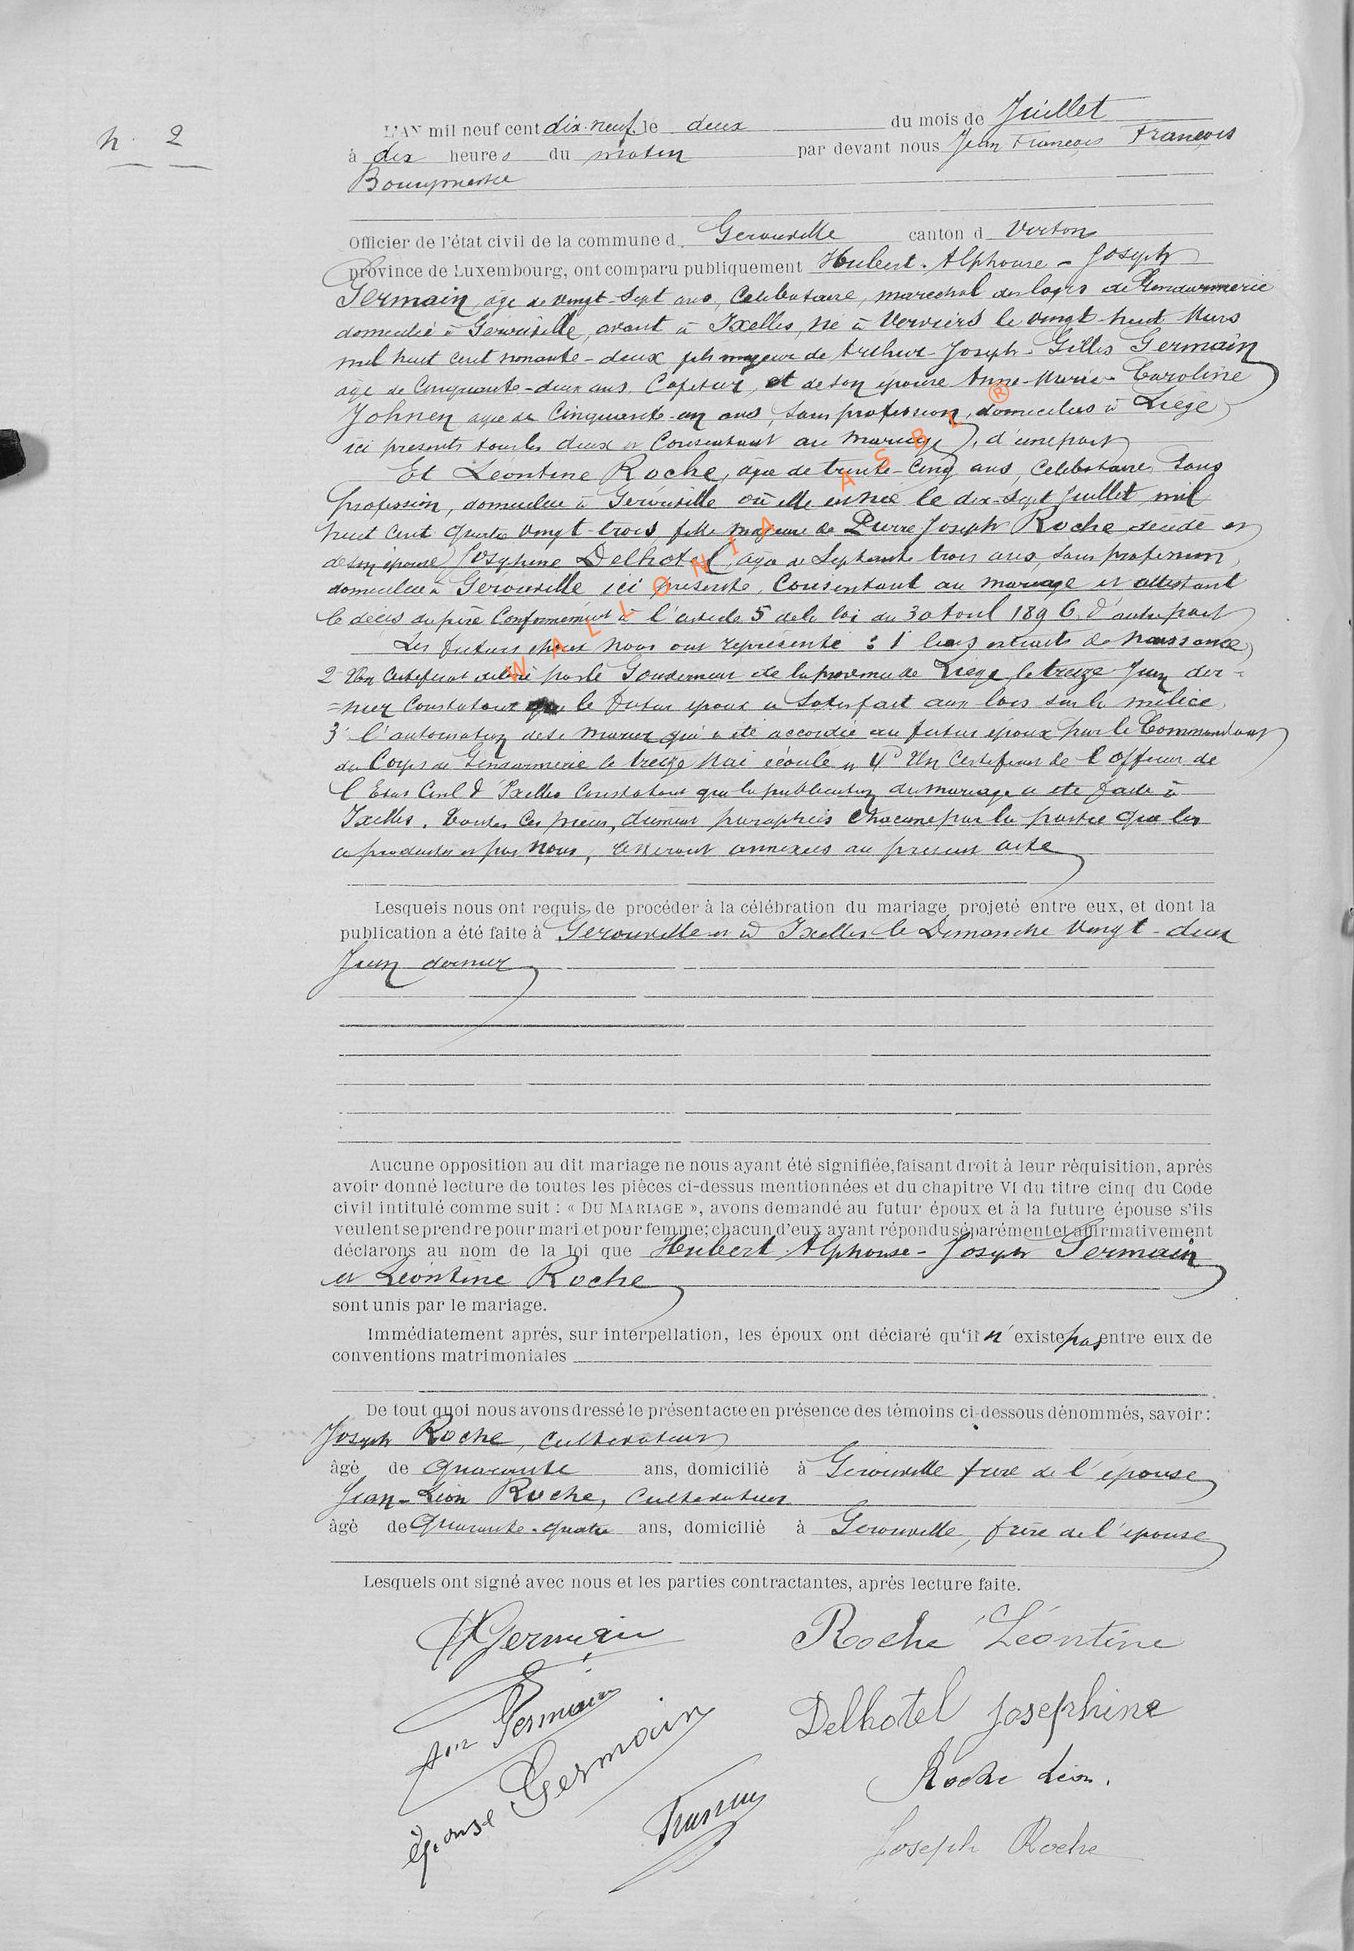 N. 2
L'AN mil neuf cent dix-neuf, le deux du mois de Juillet
à dix heures du matin par devant nous Jean François François
Bourgmestre
Officier de l'état civil de la commune d Gerouville canton d Virton
province de Luxembourg, ont comparu publiquement Hubert-Alphonse-Joseph
Germain, âgé de vingt-sept ans, célibataire, maréchal des logis de Gendarmerie
domicilié à Gerouville, avant à Ixelles, né à Verviers le vingt-huit Mars
mil huit cent nonante-deux fils majeur de Arthur-Joseph-Gilles Germain
âgé de Cinquante-deux ans, et de son épouse Anne-Marie-Caroline
Johnen âgée de Cinquante-un ans, sans profession, domiciliés à Liège
ici présents tous les deux et Consentant au mariage, d'une part
Et Léontine Roche, âgée de trente-cinq ans, célibataire, sans
profession, domiciliée à Gerouville où elle est née le dix-sept Juillet mil
huit cent quatre vingt-trois fille majeure de Pierre Joseph Roche décédé et
de son épouse Josephine Delhotel, âgée de Septante trois ans, sans profession,
domiciliée à Gerouville ici présente, Consentant au mariage et attestant
le décès du père Conformément à l'article 5 de la loi du 30 Avril 1896, d'autre part
Les futurs époux nous ont représenté : 1° leurs extraits de naissance
2° Un Certificat délivré par le Gouverneur de la province de Liège, le treize Juin der-
=nier Constatant que le futur époux a Satisfait aux lois sur la milice
3° l'autorisation de se marier qui a été accordée au futur époux par le Commandant
du Corps de Gendarmerie le treize Mai écoulé et 4° Un Certificat de l'Officier de
l'Etat Civil d'Ixelles Constatant que la publication du mariage a été faite à
Ixelles. Toutes Ces pièces, dûment paraphées Chacune par la partie qui les
a produites et par nous, resteront annexées au présent acte
Lesquels nous ont requis de procéder à la célébration du mariage projeté entre eux, et dont la
publication a été faite à Gerouville et à Ixelles le Dimanche Vingt-deux
Juin dernier
Aucune opposition au dit mariage ne nous ayant été signifiée, faisant droit à leur réquisition, après
avoir donné lecture de toutes les pièces ci-dessus mentionnées et du chapitre VI du titre cinq du Code
civil intitulé comme suit : « DU MARIAGE », avons demandé au futur époux et à la future épouse s'ils
veulent se prendre pour mari et pour femme; chacun d'eux ayant répondu séparément et affirmativement
déclarons au nom de la loi que Hubert Alphonse-Joseph Germain
et Léontine Roche
sont unis par le mariage.
Immédiatement après, sur interpellation, les époux ont déclaré qu'il n'existe pas entre eux de
conventions matrimoniales
De tout quoi nous avons dressé le présent acte en présence des témoins ci-dessous dénommés, savoir :
Joseph Roche, cultivateur
âgé de quarante ans, domicilié à Gérouville frère de l'épouse
Jean-Léon Roche, cultivateur
âgé de Quarante-quatre ans, domicilié à Gerouville, frère de l'épouse
Lesquels ont signé avec nous et les parties contractantes, après lecture faite.
HGermain Roche Léontine
Germain Delhotel Josephine
épouse Germain Roche Léon.
Joseph Roche
WALLONIA ASBL ®